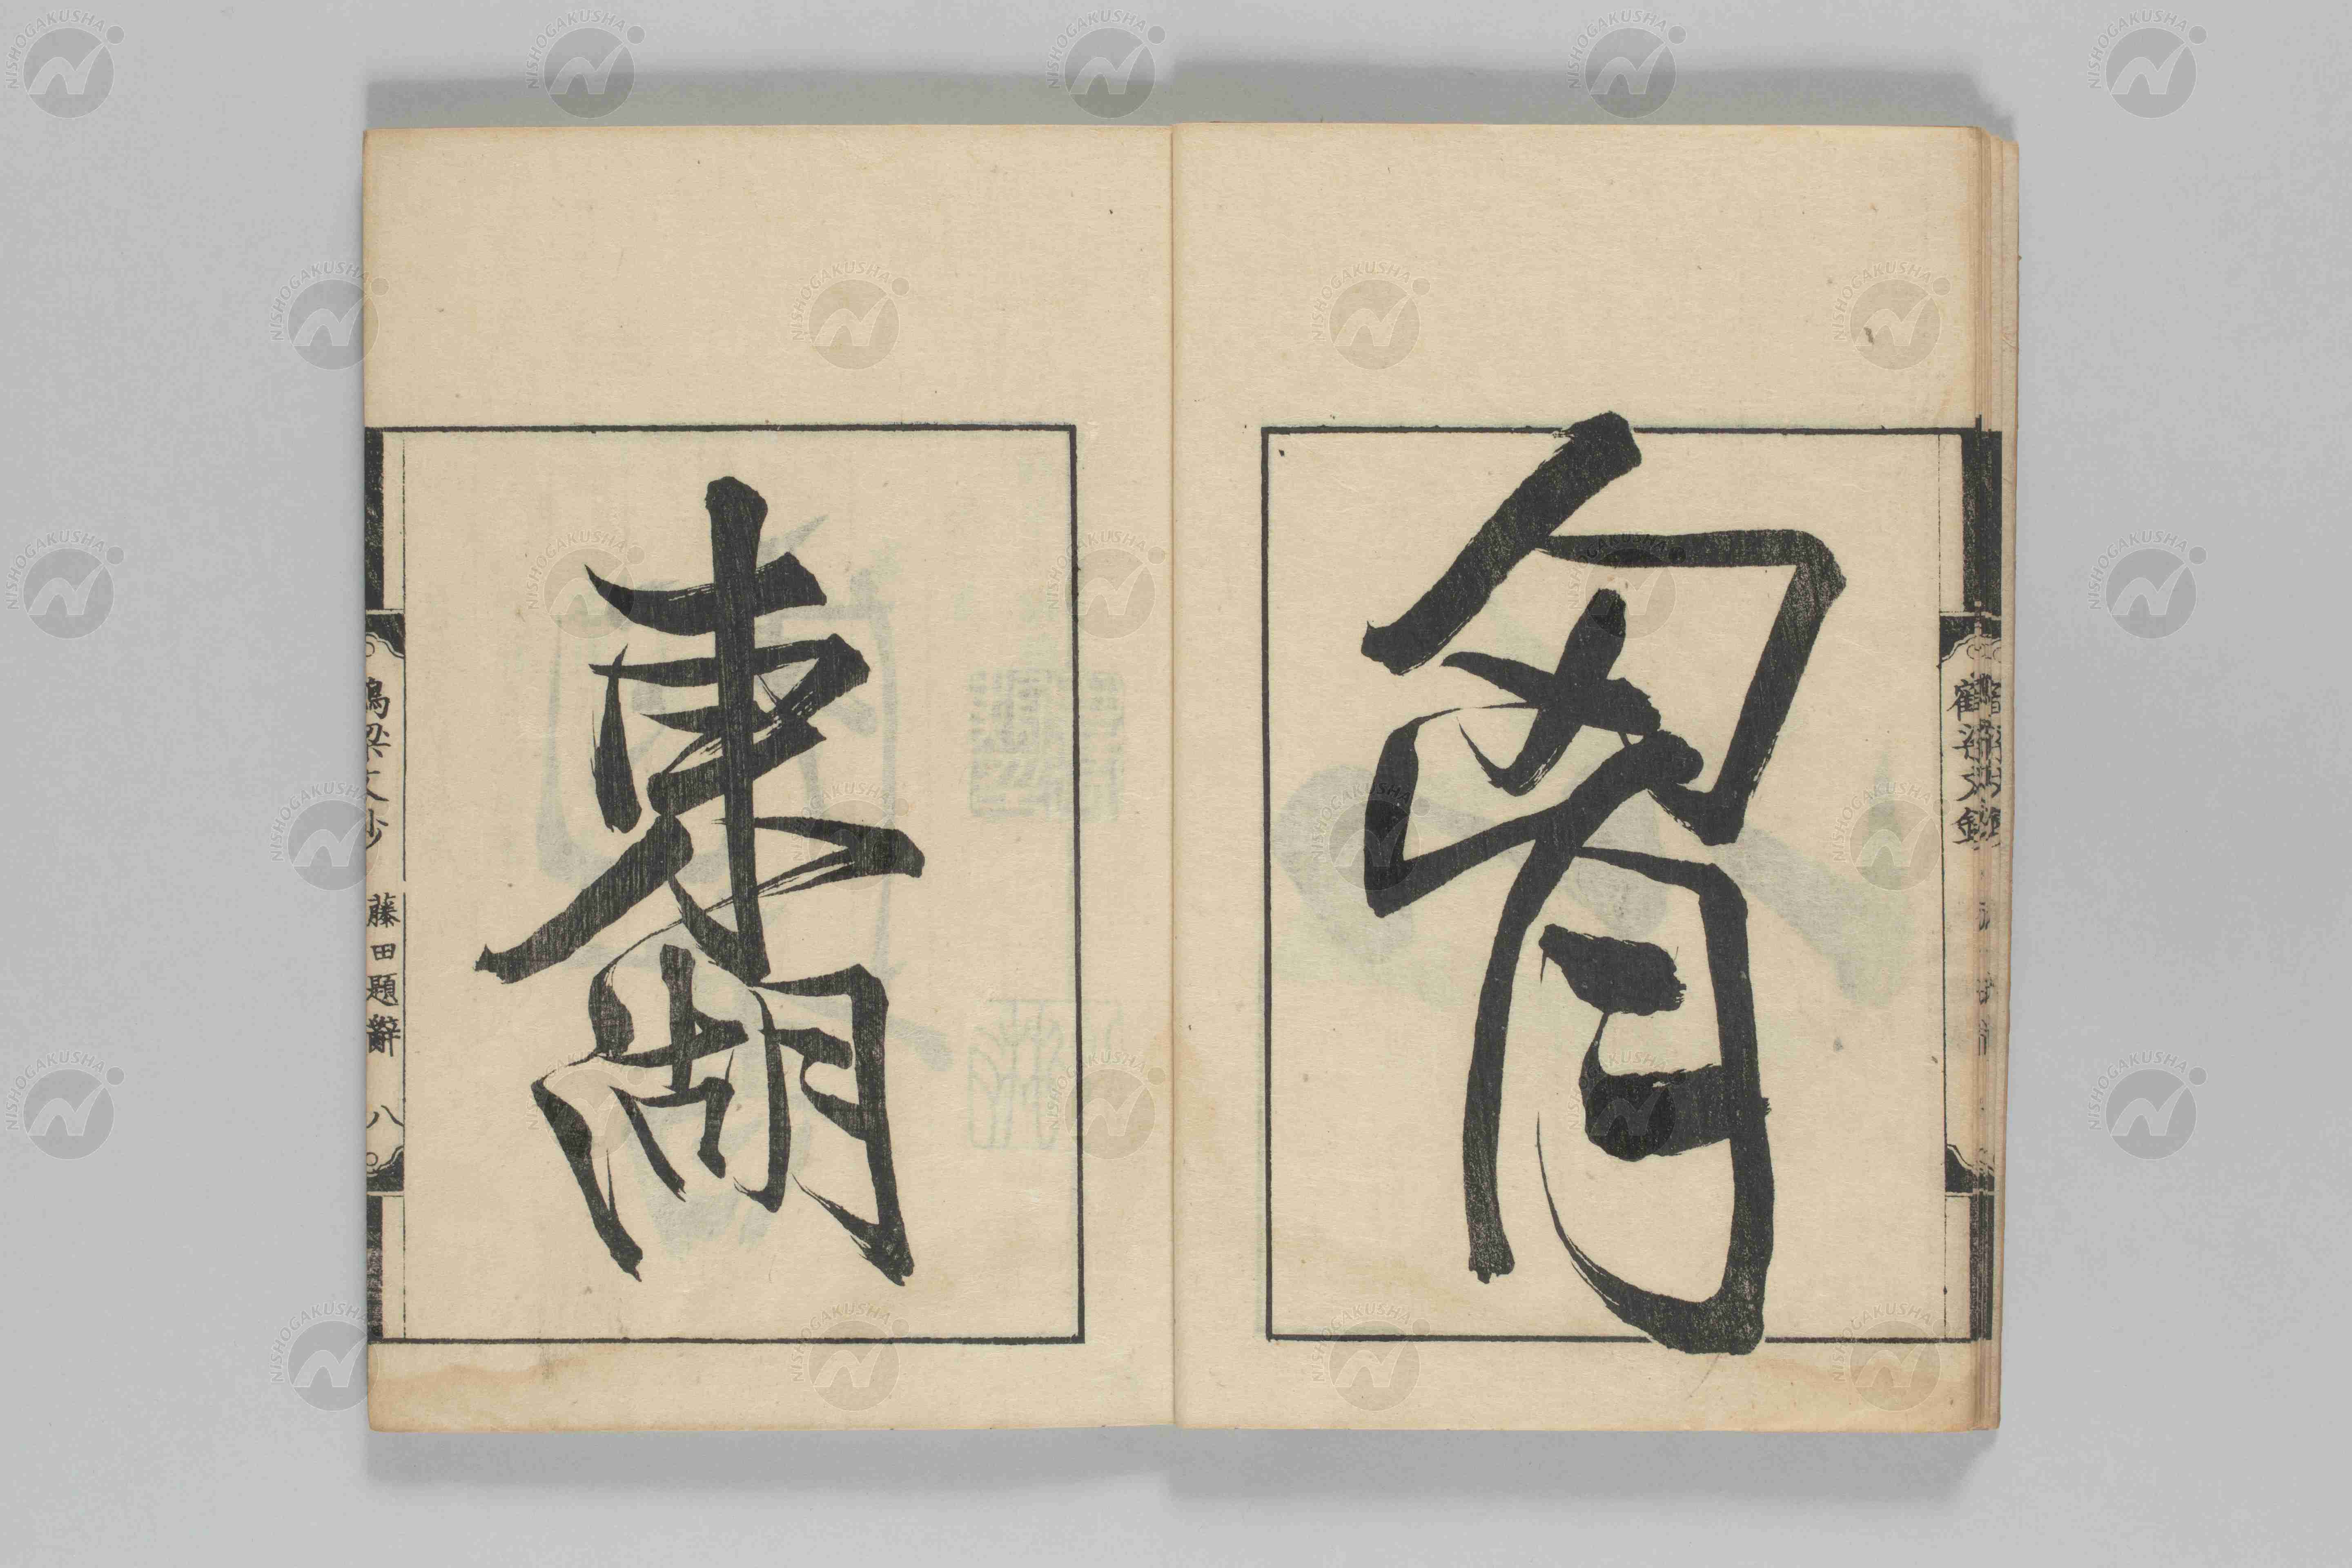 胷
東湖
鶴梁文鈔 藤田題辭 八
鶴梁文鈔
NISHOGAKUSHA